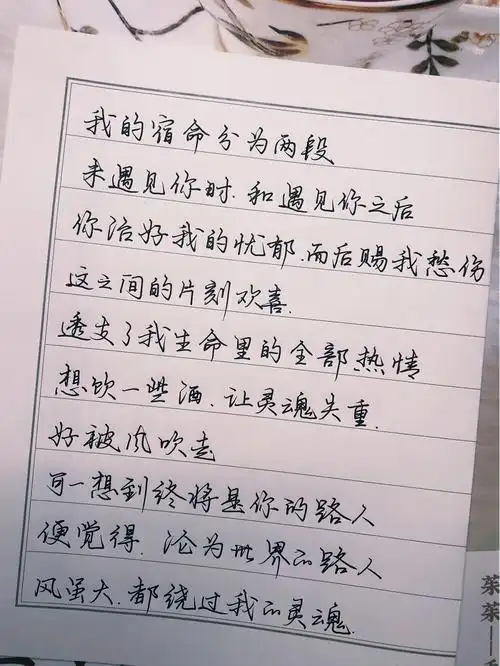 我的宿命分为两段
未遇见你时.和遇见你之后
你治好我的忧郁.而后赐我愁伤
这之间的片刻欢喜.
透支了我生命里的全部热情
想饮一些酒.让灵魂失重.
好被风吹走
可一想到终将是你的路人
便觉得.沦为世界的路人
风虽大.都绕过我的灵魂.
茶茶